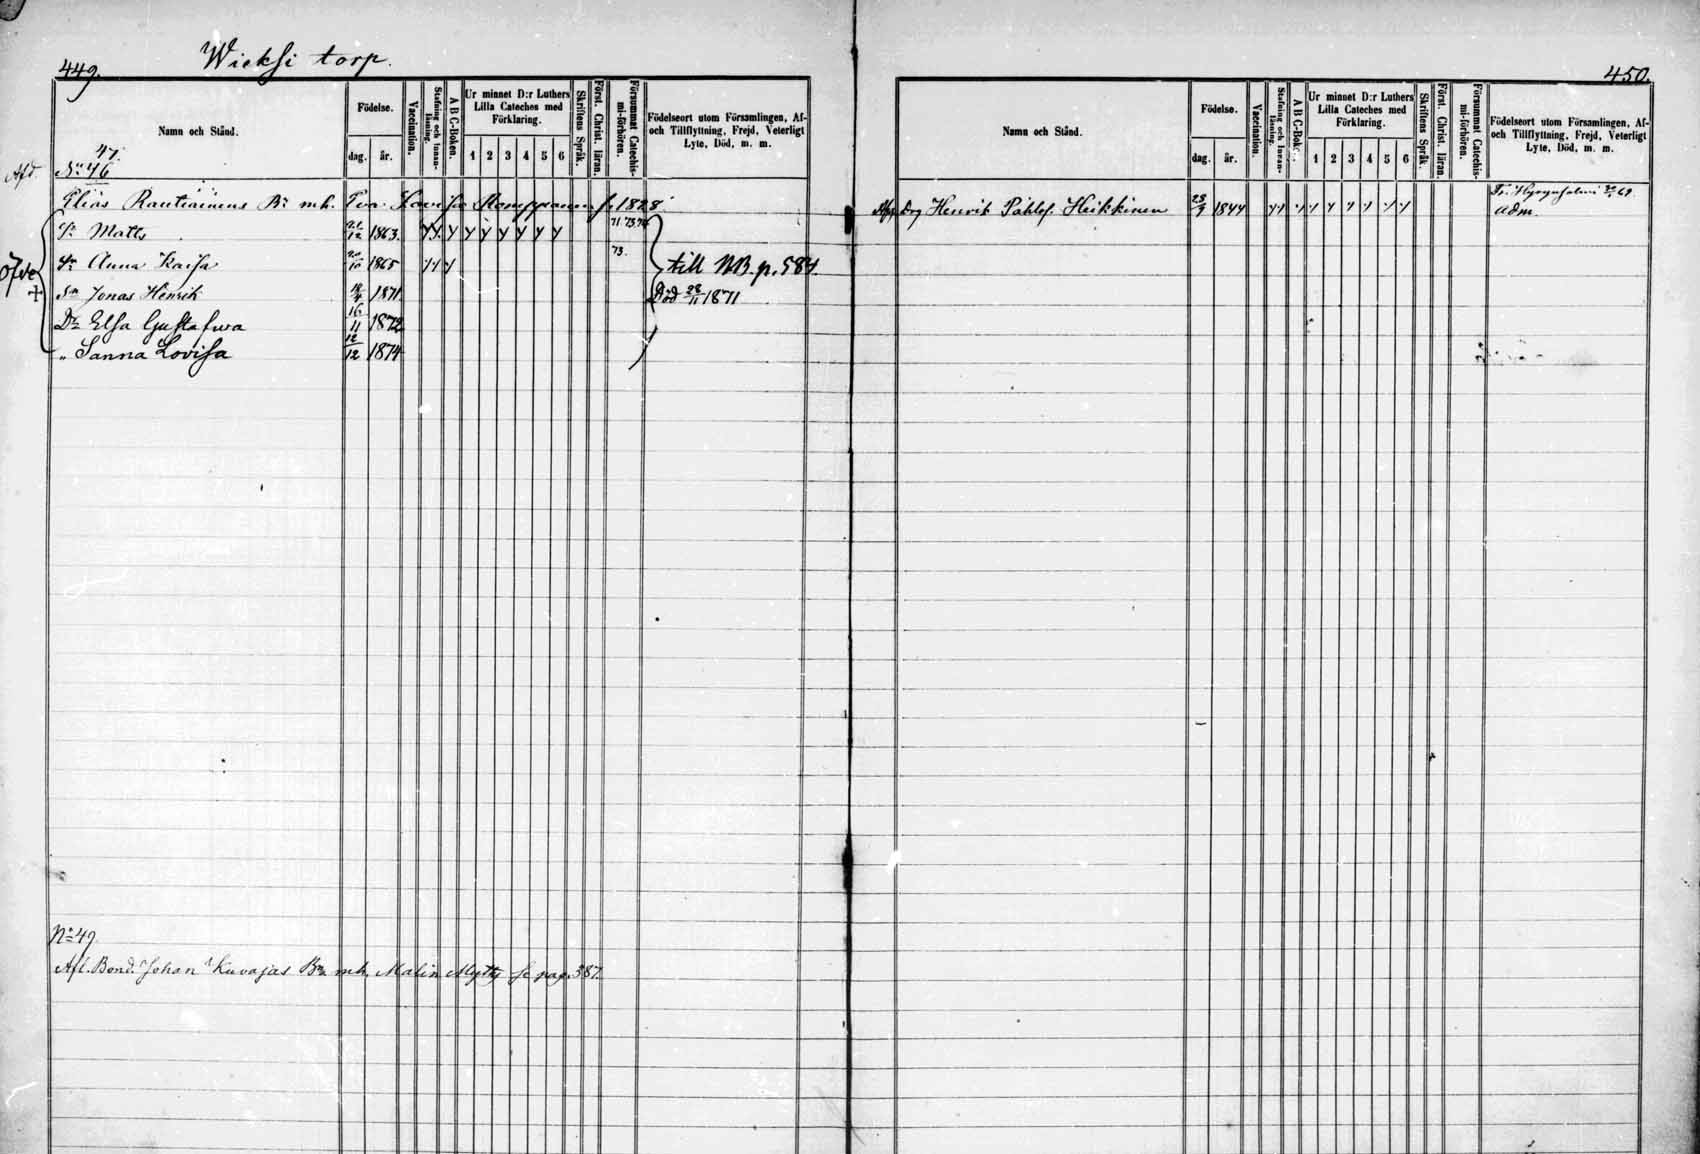 449.
Wieksi torp.
Namn och Stånd.
Födelse.
dag.
år.
Vaccination.
Stafning och Innanläsning.
A B C-Boken.
Ur minnet D:r Luthers Lilla Cateches med Förklaring.
1 2 3 4 5 6
Skriftens Språk.
Först. Christ. läran.
Försummat Catechismi-förhören.
Födelseort utom Församlingen, Af- och Tillflyttning, Frejd, Veterligt Lyte, Död, m. m.
47.
Afd. No 46
Elias Rautiainens Br mh. Eva Kaisa f. 1828
Sn Matts 21/12 1863. 71 73.74
Dr Anna Kaisa 20/10 1865 73. till NB. p. 584.
+ Sn Jonas Henrik 18/4 1871 Död 28/11 1871
Dr Elsa Gustafwa 16/11 1872
„ Sanna Lovisa 12/12 1874
No 49.
Aft. Bond. Johan Kuvajas Br mh. Malin Mytty se pag. 387.
450.
Namn och Stånd.
Födelse.
dag.
år.
Vaccination.
Stafning och Innanläsning.
A B C-Boken.
Ur minnet D:r Luthers Lilla Cateches med Förklaring.
1 2 3 4 5 6
Skriftens Språk.
Först. Christ. läran.
Försummat Catechismi-förhören.
Födelseort utom Församlingen, Af- och Tillflyttning, Frejd, Veterligt Lyte, Död, m. m.
Drg Henrik Påhlss. Heikkinen 1844 adm.